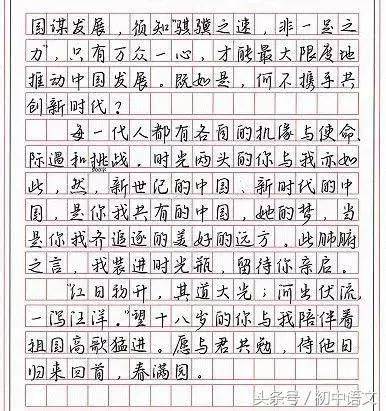 国谋发展，须知"骐骥之速，非一足之
力"，只有万众一心，才能最大限度地
推动中国发展。既如是，何不携手共
创新时代？
每一代人都有各自的机缘与使命、
际遇和挑战，时光两头的你与我亦如
此，然，新世纪的中国、新时代的中
国，是你我共有的中国，她的梦，当
是你我齐追逐的美好的远方。此肺腑
之言，我装进时光瓶，留待你亲启。
"红日初升，其道大光；河出伏流，
一泻汪洋。"望十八岁的你与我陪伴着
祖国高歌猛进。愿与君共勉，待他日
归来回首，春满园。
头条号/初中语文